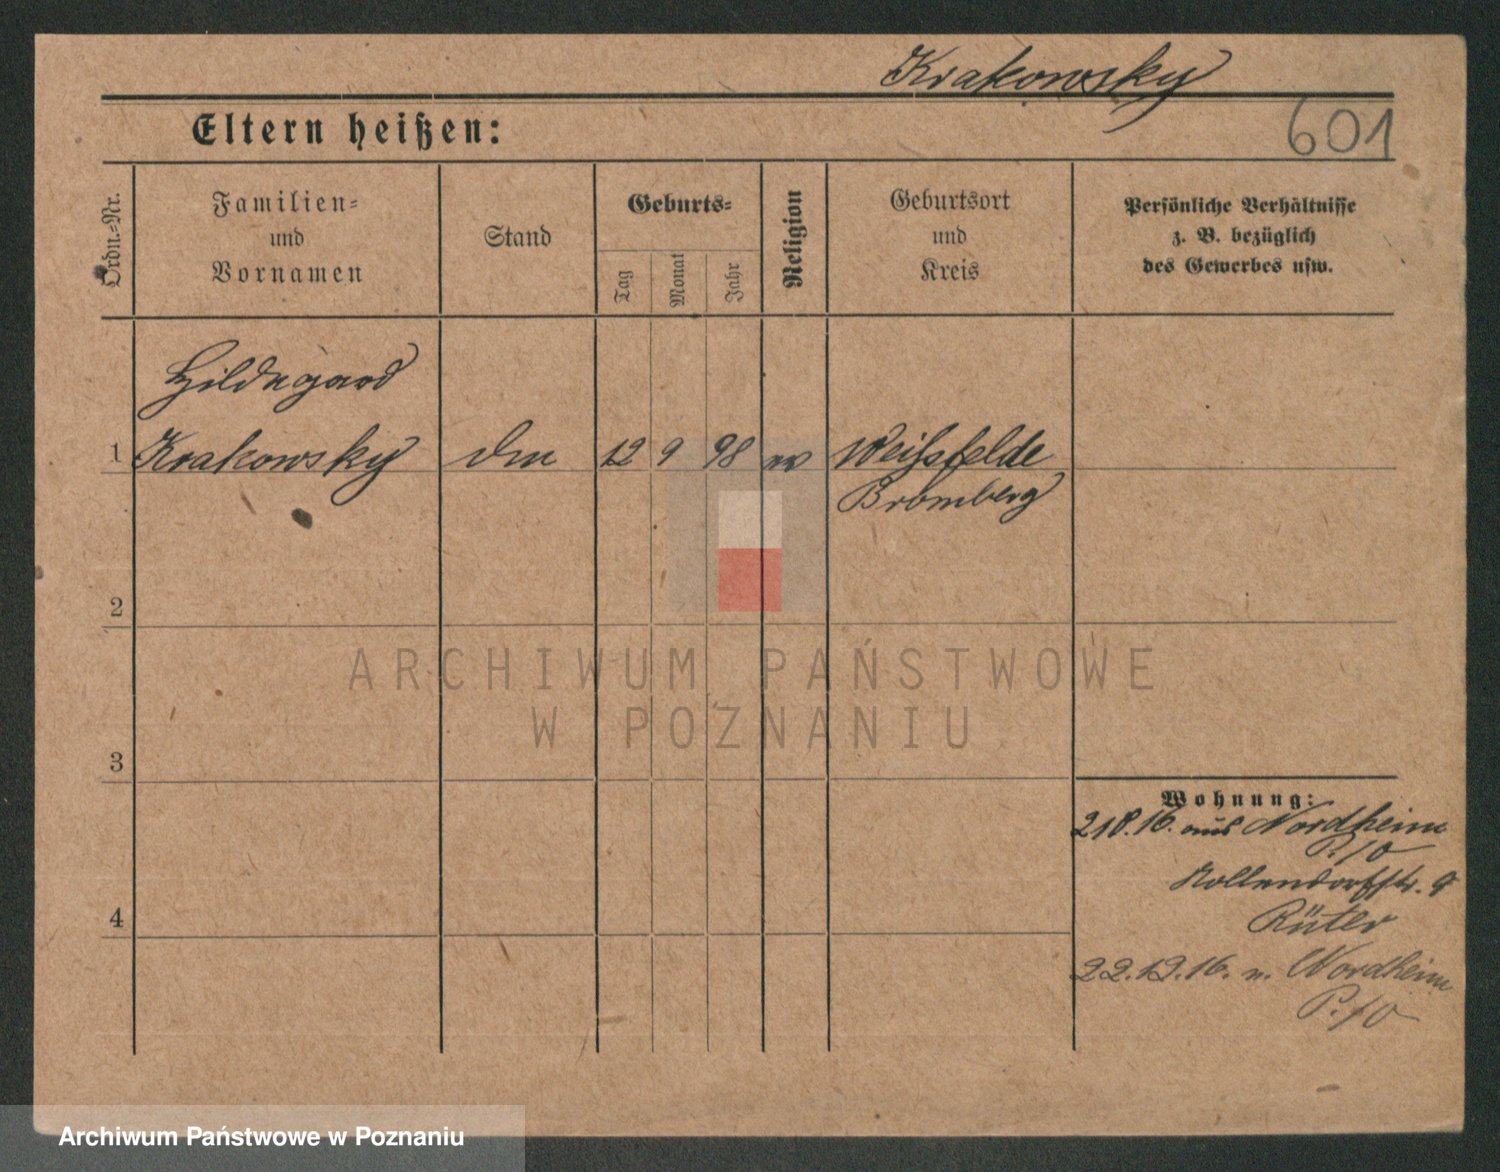 Krakowsky
601
Eltern heißen:
Ordn.-Nr.
Familien- und Vornamen
Stand
Geburts-
Tag
Monat
Jahr
Religion
Geburtsort und Kreis
Persönliche Verhältnisse
z. B. bezüglich
des Gewerbes usw.
Hildegard
1 Krakowsky 12 9 98 ev Weißfelde
Bromberg
2
3
4
Wohnung:
21 8. 16. aus Nordheim
P. /O
Nollendorfstr. 9
Rüter
22.12.16. n. Nordheim
P. /O
ARCHIWUM PAŃSTWOWE
W POZNANIU
Archiwum Państwowe w Poznaniu